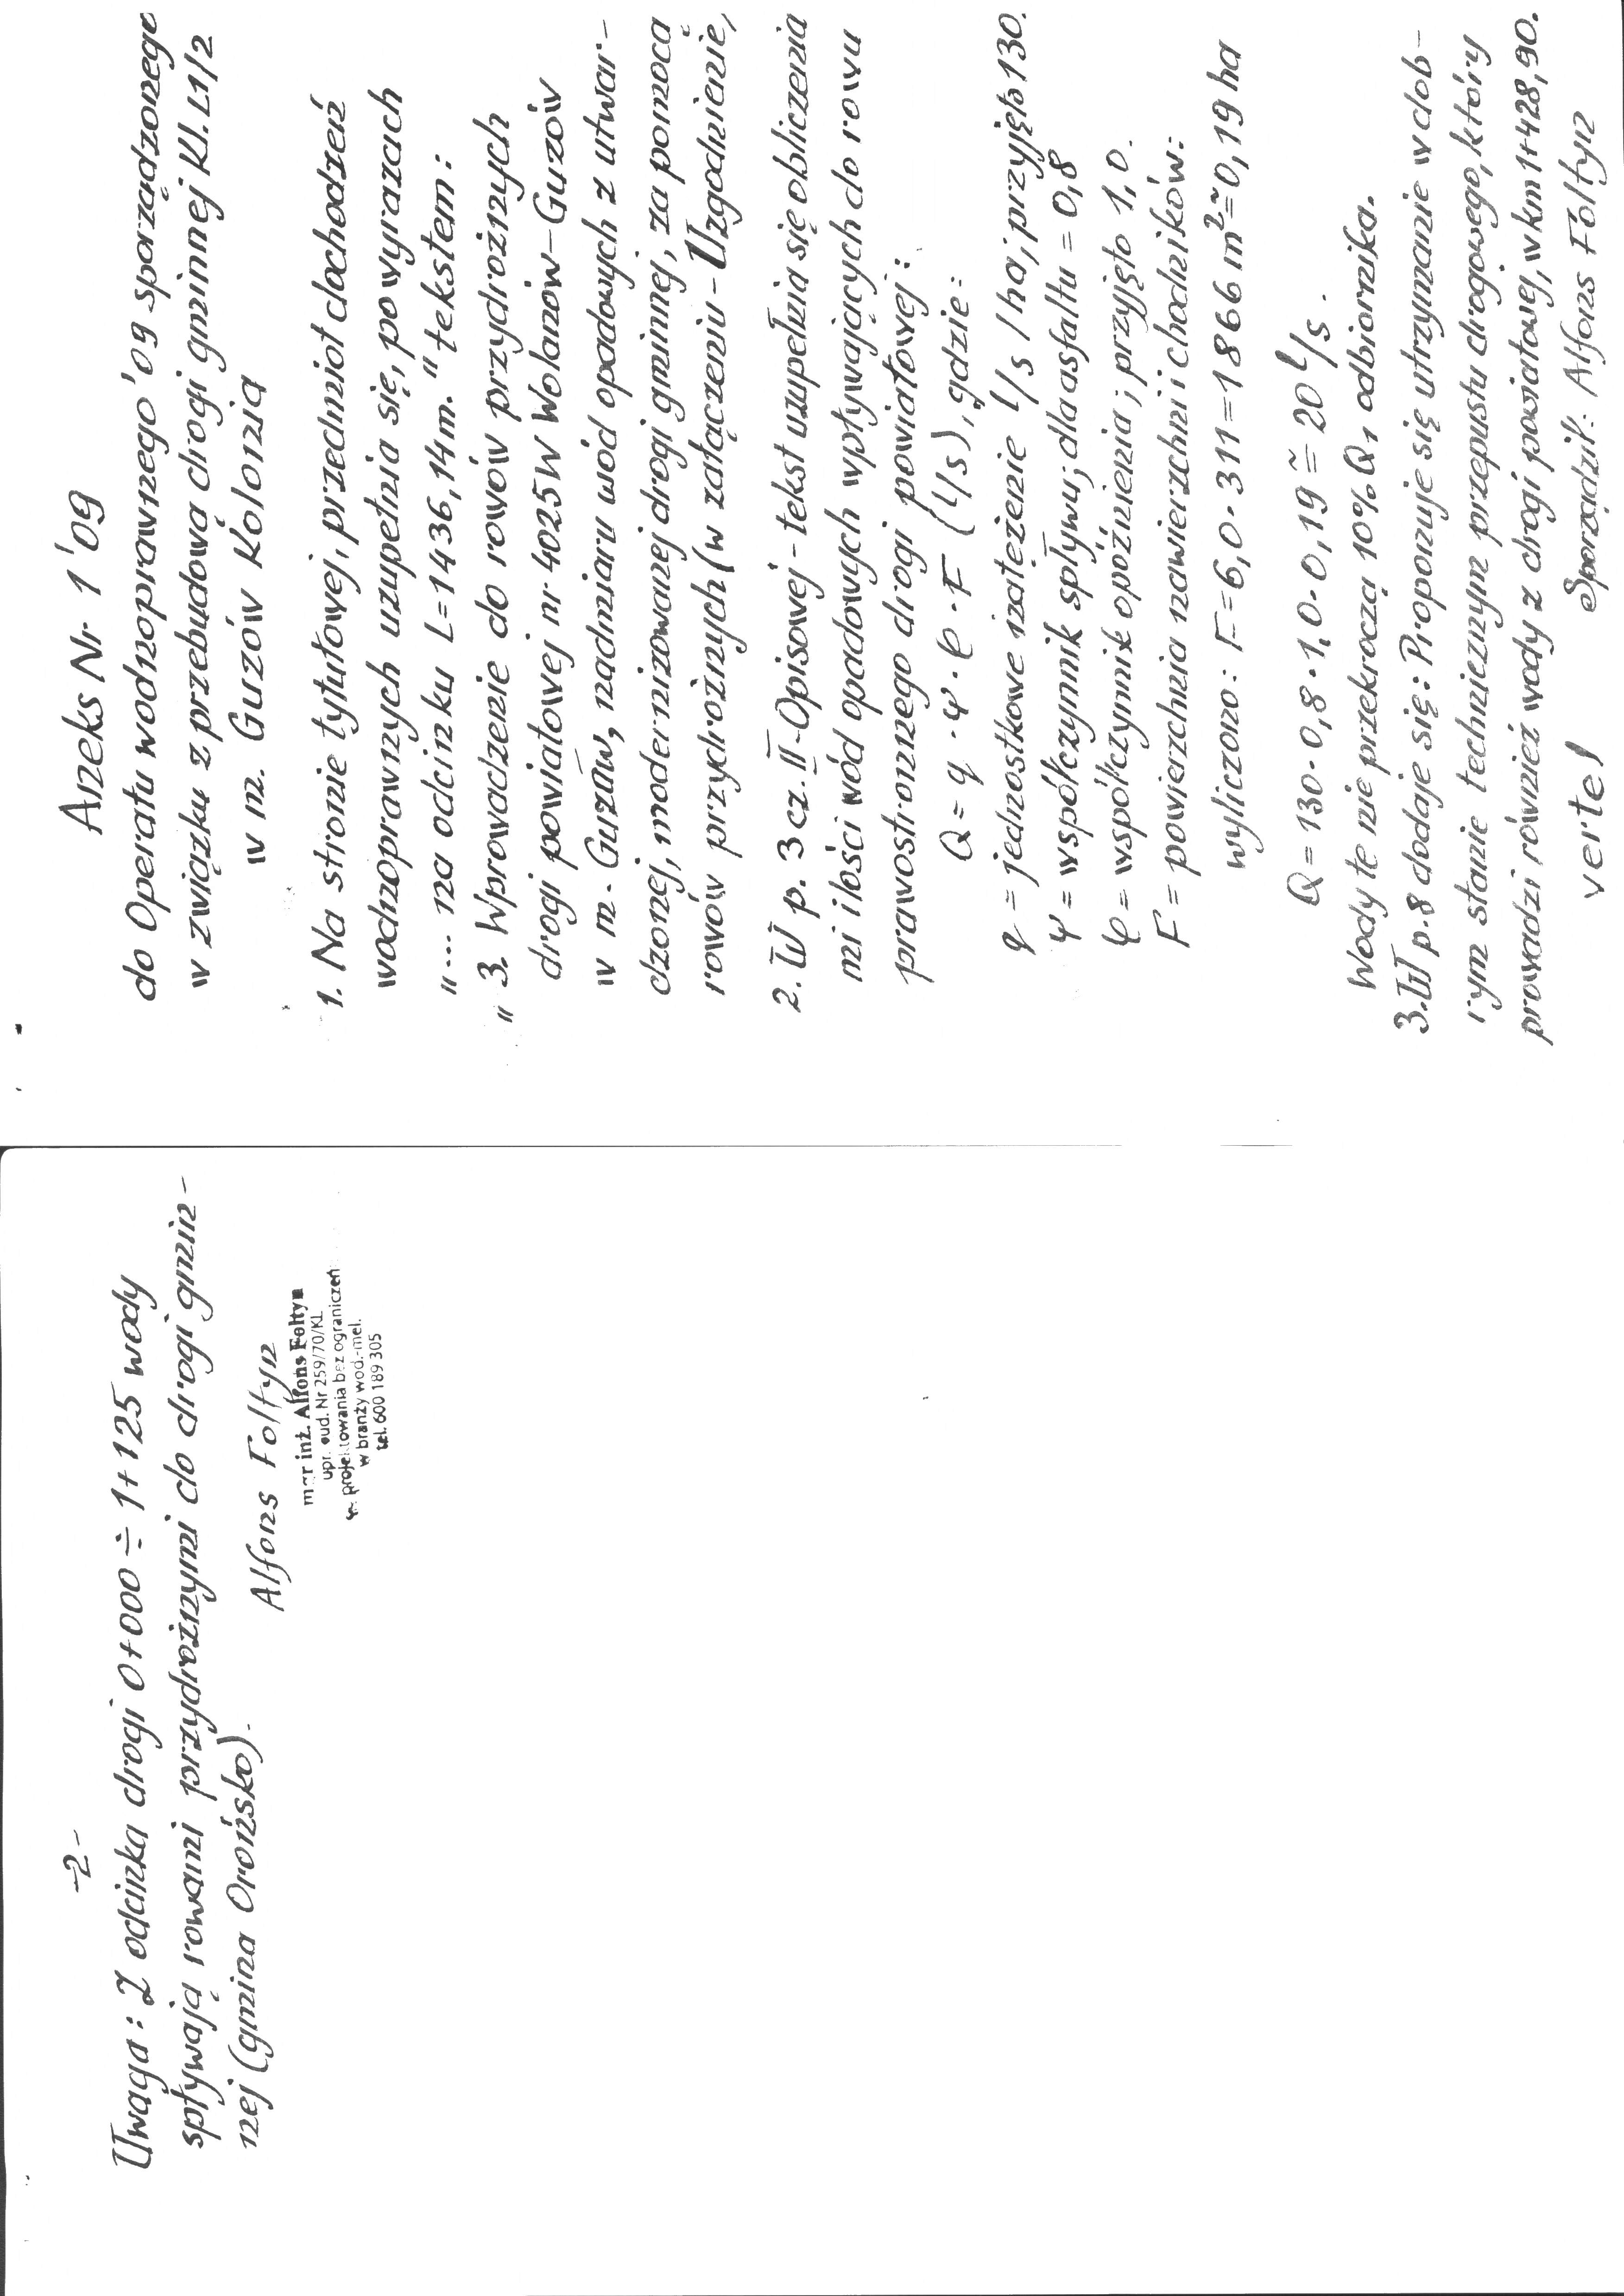 Aneks Nr 1'09
do Operatu wodnoprawnego '09 sporządzonego
w związku z przebudową drogi gminnej Kl. L1/2
w m. Guzów Kolonia
1. Na stronie tytułowej, przedmiot dochodzeń
wodnoprawnych uzupełnia się, po wyrazach
"... na odcinku L=1436,14m." tekstem:
" 3. Wprowadzenie do rowów przydrożnych
drogi powiatowej nr 4025W Wolanów-Guzów
w m. Guzów, nadmiaru wód opadowych z utwar-
dzonej, modernizowanej drogi gminnej, za pomocą
rowów przydrożnych (w załączeniu - Uzgodnienie)
2. W p. 3 cz. II-Opisowej - tekst uzupełnia się obliczenia
mi ilości wód opadowych wpływających do rowu
prawostronnego drogi powiatowej:
Q = q · ψ · φ · F (l/s), gdzie:
q = jednostkowe natężenie l/s/ha; przyjęto 130.
ψ = współczynnik spływu; dla asfaltu = 0,8
φ = współczynnik opóźnienia; przyjęto 1,0.
F = powierzchnia nawierzchni i chodników:
wyliczono: F=6,0·311=1866 m²≅0,19 ha
Q = 130·0,8·1,0·0,19 ≅ 20 l/s.
Wody te nie przekroczą 10% Q1 odbiornika.
3. W p.8 dodaje się: Proponuje się utrzymanie w dob-
rym stanie technicznym przepustu drogowego, który
prowadzi również wody z drogi powiatowej, w km 1+428,90.
Sporządził: Alfons Foltyn
verte!
-2-
Uwaga: Z odcinka drogi 0+000 ÷ 1+125 wody
spływają rowami przydrożnymi do drogi gmin-
nej (gmina Orońsko).
Alfons Foltyn
mgr inż. Alfons Foltyn
upr. bud. Nr 259/70/KL
w projektowania bez ograniczeń
w branży wod.-mel.
tel. 600 189 305